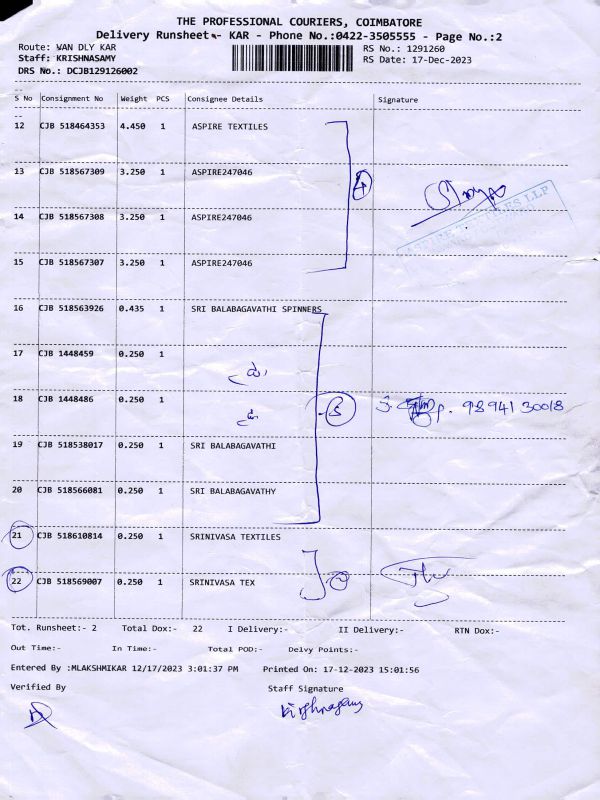 THE PROFESSIONAL COURIERS, COIMBATORE
Delivery Runsheet - KAR - Phone No.:0422-3505555 - Page No.:2
Route: VAN DLY KAR RS No.: 1291260
Staff: KRISHNASAMY RS Date: 17-Dec-2023
DRS No.: DCJB129126002
S No Consignment No Weight PCS Consignee Details Signature
12 CJB 518464353 4.450 1 ASPIRE TEXTILES
13 CJB 518567309 3.250 1 ASPIRE247046
4
14 CJB 518567308 3.250 1 ASPIRE247046
15 CJB 518567307 3.250 1 ASPIRE247046
16 CJB 518563926 0.435 1 SRI BALABAGAVATHI SPINNERS
17 CJB 1448459 0.250 1
18 CJB 1448486 0.250 1 98941 30018
19 CJB 518538017 0.250 1 SRI BALABAGAVATHI
20 CJB 518566081 0.250 1 SRI BALABAGAVATHY
21 CJB 518610814 0.250 1 SRINIVASA TEXTILES
22 CJB 518569007 0.250 1 SRINIVASA TEX
Tot. Runsheet:- 2 Total Dox:- 22 I Delivery:- II Delivery:- RTN Dox:-
Out Time:- In Time:- Total POD:- Delvy Points:-
Entered By :MLAKSHMIKAR 12/17/2023 3:01:37 PM Printed On: 17-12-2023 15:01:56
Verified By Staff Signature